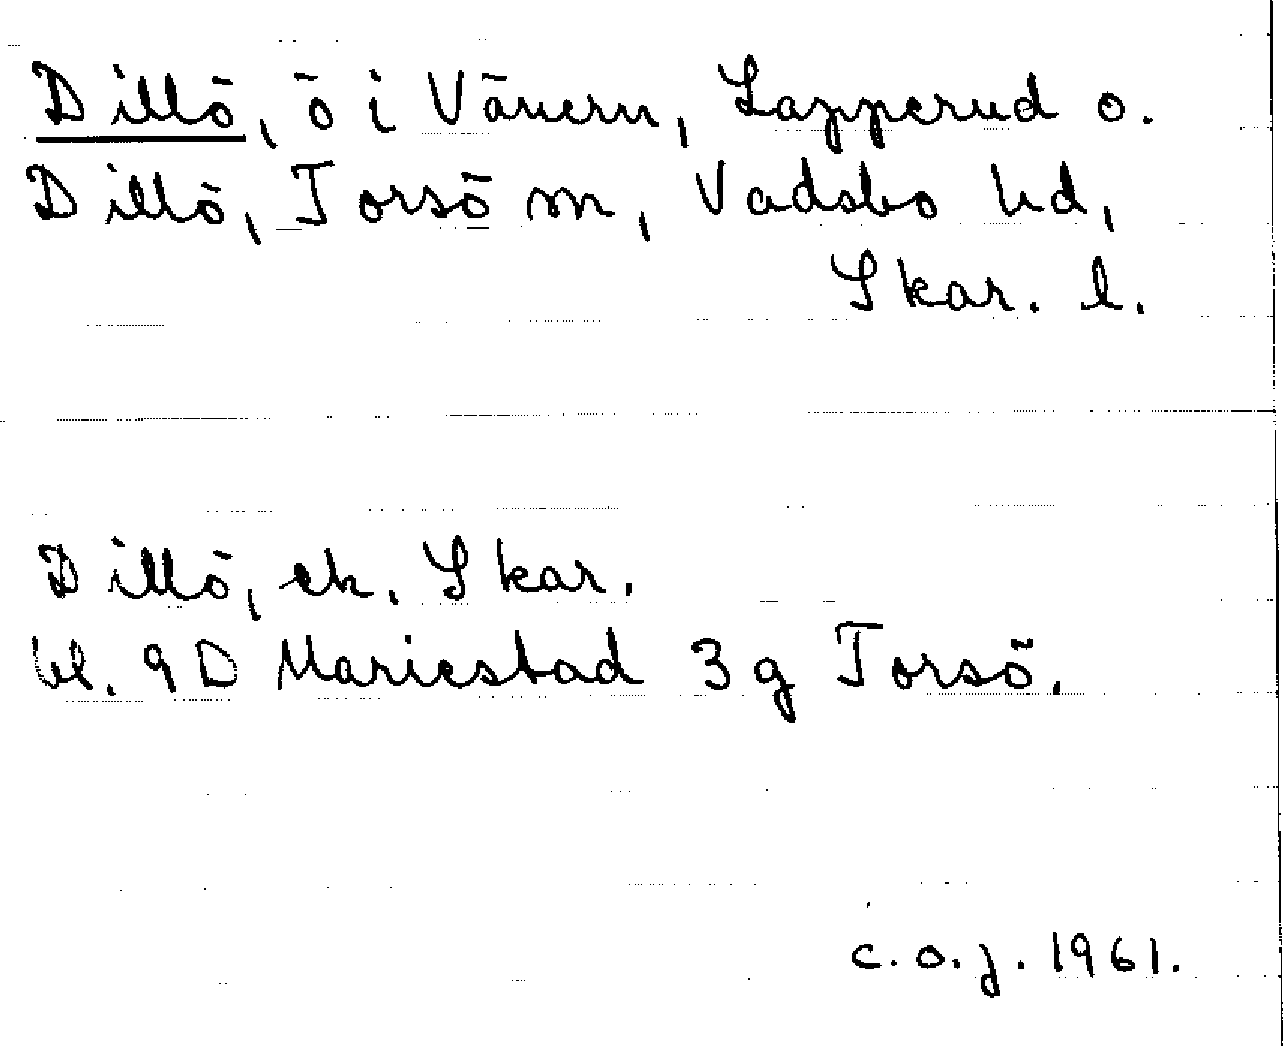 Dillö, ö i Vänern, Lapperud o.
Dillö, Torsö sn, Vadsbo hd,
Skar. l.
Dillö, ek. Skar.
bl. 9D Mariestad 3g Torsö.
c.o.j. 1961.